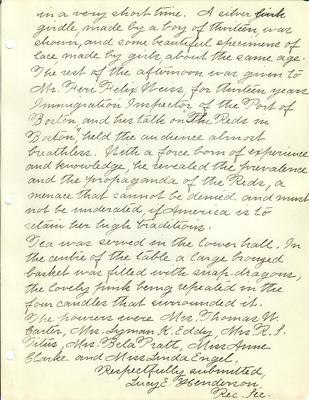 in a very short time. A silver link
girdle, made by a boy of thirteen, was
shown, and some beautiful specimens of
lace made by girls, about the same age.
The rest of the afternoon was given to
Mr. Feri Felix Weiss, for thirteen years
Immigration Inspector of the Port of
Boston and his talk on "The Reds in
Boston", held the audience almost
breathless. With a force born of experience
and knowledge, he revealed the prevalence
and the propaganda of the Reds, a
menace that cannot be denied and must
not be underated, if America is to
retain her high traditions.
Tea was served in the lower hall. In
the centre of the table a large bronzed
basket was filled with snap-dragons,
the lovely pink being repeated in the
four candles that surrounded it.
The pourers were Mrs. Thomas W.
Carter, Mrs. Lyman K. Eddy, Mrs. R. S.
Titus, Mrs. Bela Pratt, Miss Anne
Clarke and Miss Linda Engel.
Respectfully submitted,
Lucy E. Henderson,
Rec. Sec.